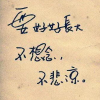 要好好長大
不想念，
不悲涼。